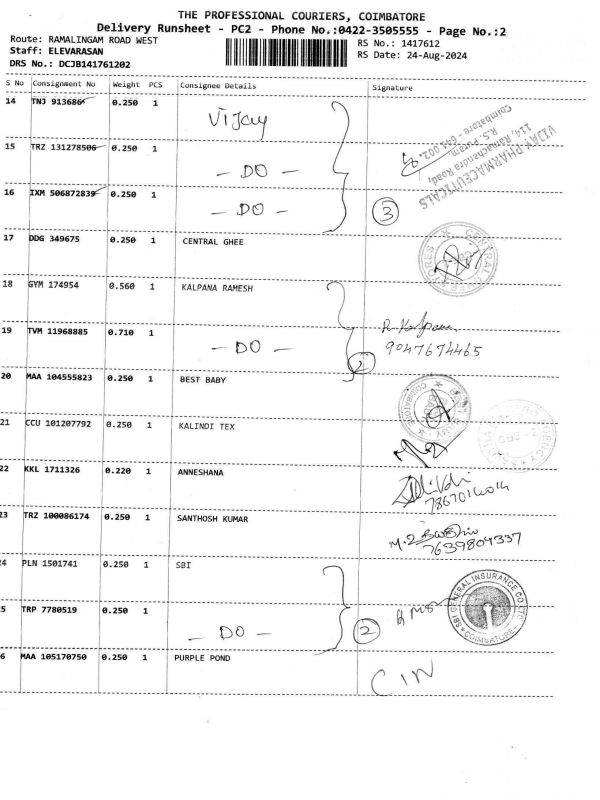 THE PROFESSIONAL COURIERS, COIMBATORE
Delivery Runsheet - PC2 - Phone No.:0422-3505555 - Page No.:2
Route: RAMALINGAM ROAD WEST
Staff: ELEVARASAN
DRS No.: DCJB141761202
RS No.: 1417612
RS Date: 24-Aug-2024
S No Consignment No Weight PCS Consignee Details Signature
14 TNJ 913686 0.250 1 Vijay
VIJAY PHARMACEUTICALS
114, Ramachandra Road,
R.S. Puram,
Coimbatore - 641 002.
15 TRZ 131278506 0.250 1 - DO -
16 IXM 506872839 0.250 1 - DO - 3
17 DDG 349675 0.250 1 CENTRAL GHEE
18 GYM 174954 0.560 1 KALPANA RAMESH
R. Kalpana
19 TVM 11968885 0.710 1 - DO - 2
9047674465
20 MAA 104555823 0.250 1 BEST BABY
21 CCU 101207792 0.250 1 KALINDI TEX
22 KKL 1711326 0.220 1 ANNESHANA
23 TRZ 100086174 0.250 1 SANTHOSH KUMAR
7639804337
24 PLN 1501741 0.250 1 SBI
SBI GENERAL INSURANCE CO LTD
COIMBATORE
25 TRP 7780519 0.250 1 - DO - 2
26 MAA 105170750 0.250 1 PURPLE POND CIN